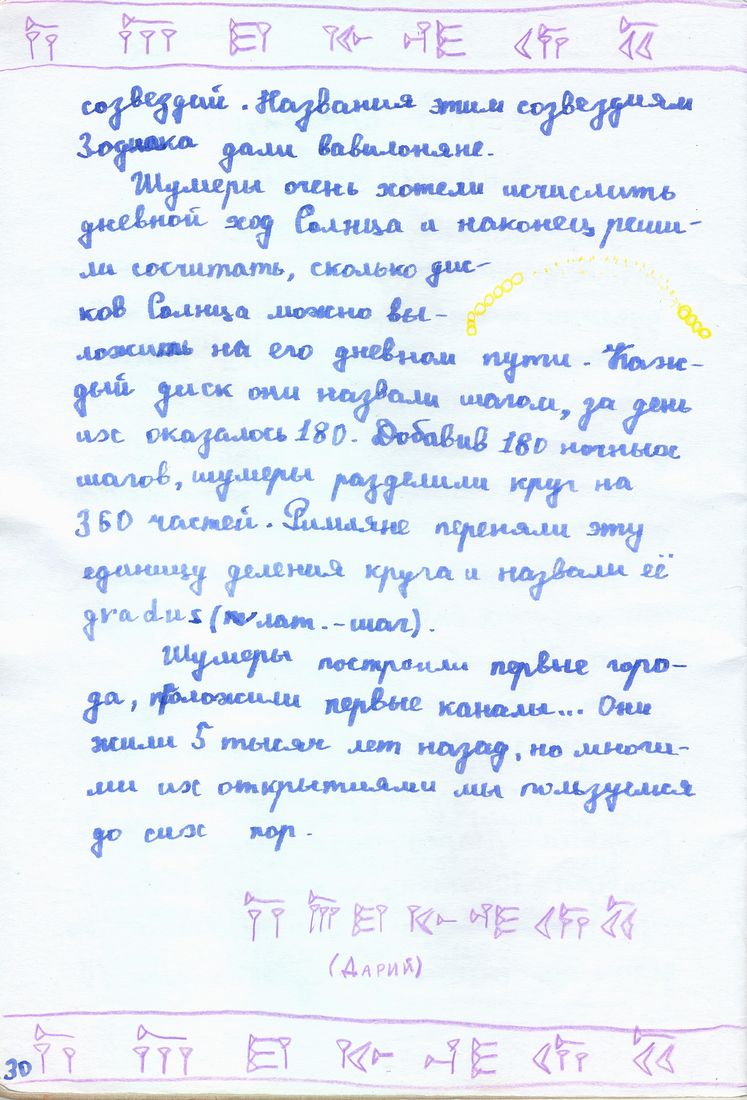 𐎭 𐎠 𐎼 𐎹 𐎺 𐎢 𐏁
созвездий. Названия этим созвездиям
Зодиака дали вавилоняне.
Шумеры очень хотели исчислить
дневной ход Солнца и наконец реши-
ли сосчитать, сколько дис-
ков Солнца можно вы-
ложить на его дневном пути. Каж-
дый диск они назвали шагом, за день
их оказалось 180. Добавив 180 ночных
шагов, шумеры разделили круг на
360 частей. Римляне переняли эту
единицу деления круга и назвали её
gradus (лат.-шаг).
Шумеры построили первые горо-
да, проложили первые каналы... Они
жили 5 тысяч лет назад, но многи-
ми их открытиями мы пользуемся
до сих пор.
𐎭 𐎠 𐎼 𐎹 𐎺 𐎢 𐏁
(ДАРИЙ)
𐎭 𐎠 𐎼 𐎹 𐎺 𐎢 𐏁
30